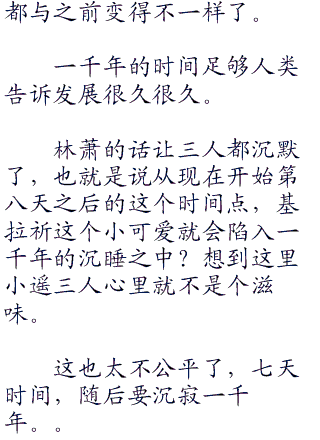 都与之前变得不一样了。
一千年的时间足够人类
告诉发展很久很久。
林萧的话让三人都沉默
了，也就是说从现在开始第
八天之后的这个时间点，基
拉祈这个小可爱就会陷入一
千年的沉睡之中？想到这里
小遥三人心里就不是个滋
味。
这也太不公平了，七天
时间，随后要沉寂一千
年。。